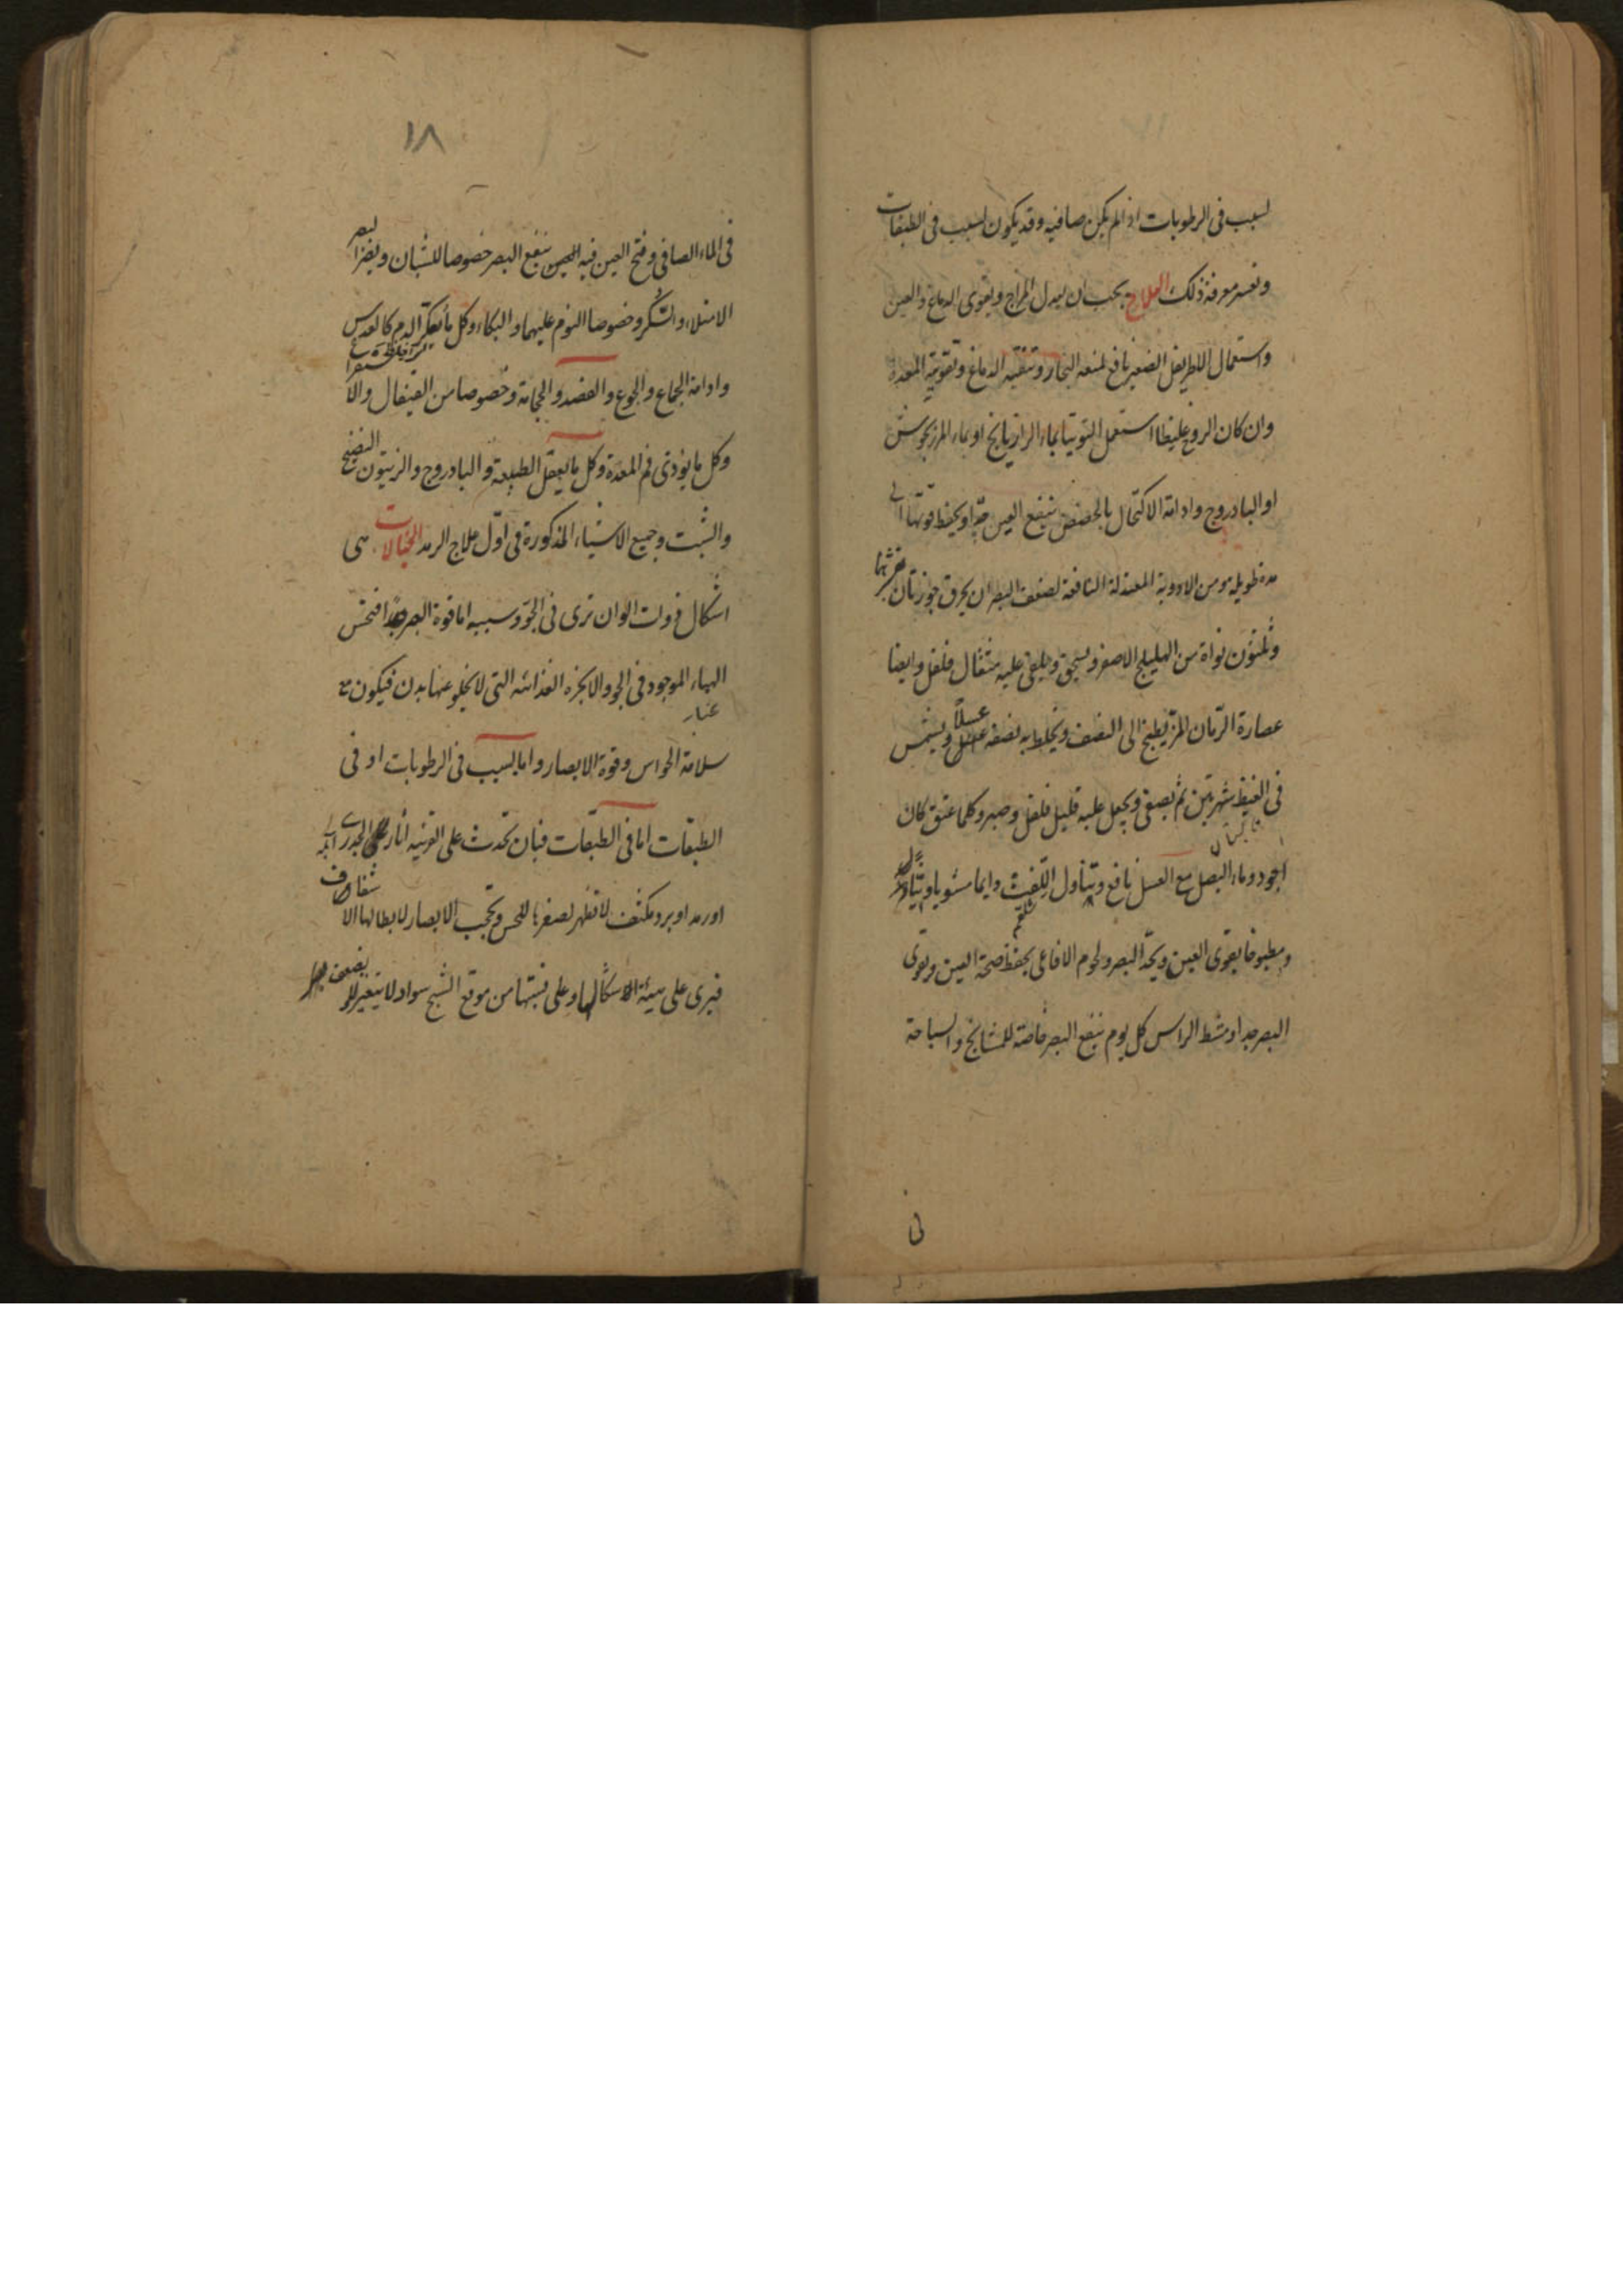 لسبب فى الرطوبات اذا لم يكن صافيه وقد يكون لسبب فى الطبقات
وتعسر معرفة ذلك العلاج يجب ان يعدل المزاج ويقوى الدماغ والعين
واستعمال الاطريفل الصغير نافع لمنعه البخار وتنقيه الدماغ وتقويته المعدة
وان كان الروح غليظا استعمل التوتيا بماء الرازيانج او بماء المرزنجوش
او البادروج وادامة الاكتحال بالحضض ينفع العين جدا ويحفظ قوتها الى
مدة طويله ومن الادوية المعتدلة النافعة لضعف البصر ان يحرق جوزتان
وثلثون نواة من الهليلج الاصفر ويسحق ويلقى عليه مثقال فلفل وايضا
عصارة الرمان المز يطبخ الى النصف ويخلط به نصفه عسلا ويشمس
فى القيظ شهرين ثم يصفى ويجعل عليه قليل فلفل وصبر وكلما عتق كان
اجود وماء البصل مع العسل نافع وتناول اللفت دايما مشويا و
ومطبوخا يقوى العين ويحد البصر ولحوم الافاعى يحفظ صحة العين ويقوى
البصر جدا ومشط الراس كل يوم ينفع البصر خاصة للمشايخ والسباحة
فى
١٨
فى الماء الصافى وفتح العين فيه ينفع البصر خصوصا للشبان ويضر البصر
الامتلاء والسكر وخصوصا النوم عليهما والبكاء وكل ما يعكر الدم كالعدس
وادامة الجماع والجوع والفصد والحجامة وخصوصا من القيفال والا
وكل ما يؤذى فم المعدة وكل ما يعقل الطبيعة والبادروج والزيتون النضيج
والشبت وجميع الاشياء المذكورة فى اول علاج الرمد الخيالات هى
اشكال ذوات الوان ترى فى الجو وسببه اما قوة البصر جدا فتحس
الهباء الموجود فى الجو والابخرة الغذائيه التى لا يخلو عنها بدن فيكون مع
غبار
سلامة الحواس وقوة الابصار واما لسبب فى الرطوبات او فى
الطبقات اما فى الطبقات فبان تحدث على القرنيه اثار الجدرى
او رمد او برد مكثف لا تظهر لصغرها للحس وتحجب الابصار لابطالها الا
فيرى على هيئة اشكالها وعلى نسبتها من موقع الشبح سواد لا يتغير